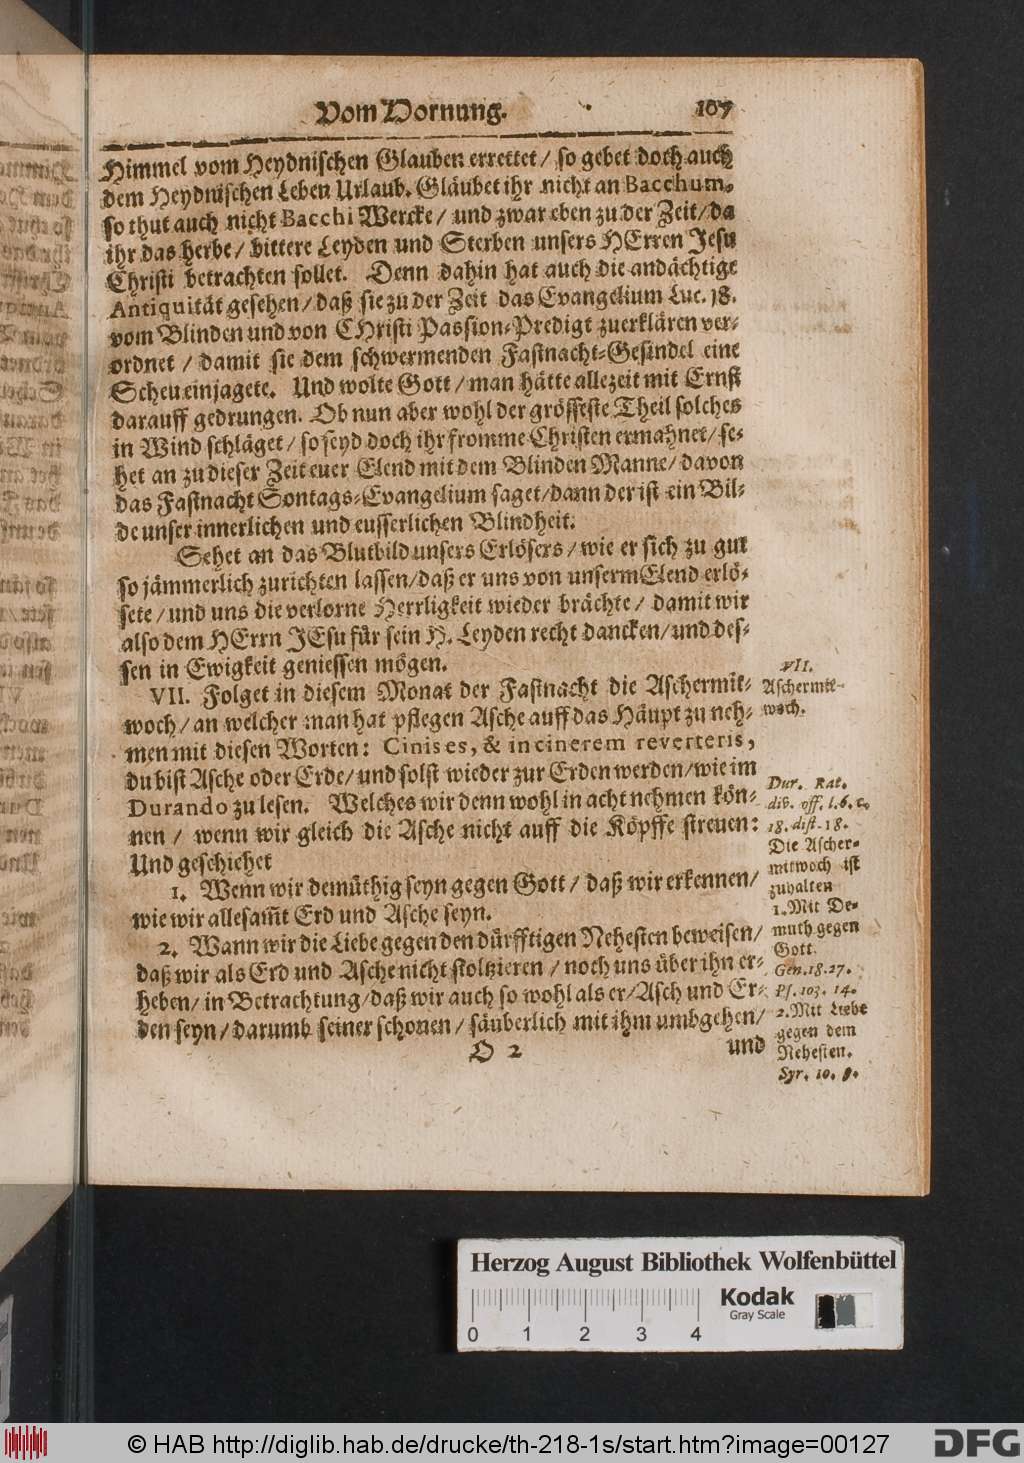 Vom Hornung. 107
Himmel vom Heydnischen Glauben errettet / so gebet doch auch
dem Heydnischen Leben Urlaub. Gläubet ihr nicht an Bacchum,
so thut auch nicht Bacchi Wercke / und zwar eben zu der Zeit / da
ihr das herbe / bittere Leyden und Sterben unsers HErren Jesu
Christi betrachten sollet. Denn dahin hat auch die andächtige
Antiquität gesehen / daß sie zu der Zeit das Evangelium Luc. 18.
vom Blinden und von CHristi Passion-Predigt zuerklären ver-
ordnet / damit sie dem schwermenden Fastnacht-Gesindel eine
Scheu einjagete. Und wolte Gott / man hätte allezeit mit Ernst
darauff gedrungen. Ob nun aber wohl der grösseste Theil solches
in Wind schläget / so seyd doch ihr fromme Christen ermahnet / se-
het an zu dieser Zeit euer Elend mit dem Blinden Manne / davon
das Fastnacht Sontags-Evangelium saget / dann der ist ein Bil-
de unser innerlichen und eusserlichen Blindheit.
Sehet an das Blutbild unsers Erlösers / wie er sich zu gut
so jämmerlich zurichten lassen / daß er uns von unserm Elend erlö-
sete / und uns die verlorne Herrligkeit wieder brächte / damit wir
also dem HErrn JEsu für sein H. Leyden recht dancken / und des-
sen in Ewigkeit geniessen mögen.
VII. Folget in diesem Monat der Fastnacht die Aschermit-
woch / an welcher man hat pflegen Asche auff das Häupt zu neh-
men mit diesen Worten: Cinis es, & in cinerem reverteris,
du bist Asche oder Erde / und solst wieder zur Erden werden / wie im
Durando zu lesen. Welches wir denn wohl in acht nehmen kön-
nen / wenn wir gleich die Asche nicht auff die Köpffe streuen:
Und geschiehet
1. Wenn wir demüthig seyn gegen Gott / daß wir erkennen /
wie wir allesam̃t Erd und Asche seyn.
2. Wann wir die Liebe gegen den dürfftigen Nehesten beweisen /
daß wir als Erd und Asche nicht stoltzieren / noch uns über ihn er-
heben / in Betrachtung / daß wir auch so wohl als er / Asch und Er-
den seyn / darumb seiner schonen / säuberlich mit ihm umbgehen /
O 2 und
VII.
Aschermit-
woch.
Dur. Rat.
div. off. l. 6. c.
18. dist. 18.
Die Ascher-
mitwoch ist
zuhalten
1. Mit De-
muth gegen
Gott.
Gen. 18. 27.
Ps. 103. 14.
2. Mit Liebe
gegen dem
Nehesten.
Syr. 10. 9.
Herzog August Bibliothek Wolfenbüttel
0 1 2 3 4
Kodak
Gray Scale
© HAB http://diglib.hab.de/drucke/th-218-1s/start.htm?image=00127
DFG